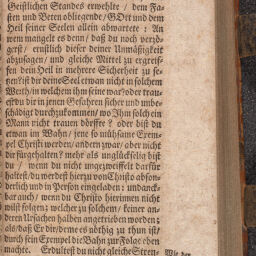 Geistlichen Standes erwehlte / dem Fa-
sten und Beten obliegende / GOtt und dem
Heil seiner Seelen allein abwartete: An
wem mangelt es denn / daß du noch verzö-
gerst / ernstlich dieser deiner Unmäßigkeit
abzusagen / und gleiche Mittel zu ergreif-
fen dein Heil in mehrere Sicherheit zu se-
tzen? ist dir deine Seel etwan nicht in solchem
Werth / in welchem ihm seine war? oder trau-
est du dir in jenen Gefahren sicher und unbe-
schädigt durchzukommen / wo Ihm solch ein
Mann nicht trauen dörffte? oder bist du
etwan im Wahn / jene so mühsame Exem-
pel Christi werden / andern zwar / aber nicht
dir fürgehalten? mehr als unglückselig bist
du / wenn du nicht ungezweiffelt darfür
haltest / du werdest hierzu von Christo abson-
derlich und in Person eingeladen: undanck-
bar auch / wenn du Christo hierinnen nicht
wilst folgen; welcher zu solchem / keiner an-
deren Ursachen halben angetrieben worden;
als / daß Er dir / deme es nöthig zu thun ist /
durch sein Exempel die Bahn zur Folge eben
machte. Erdultest du nicht gleiche Stren-
Wie der